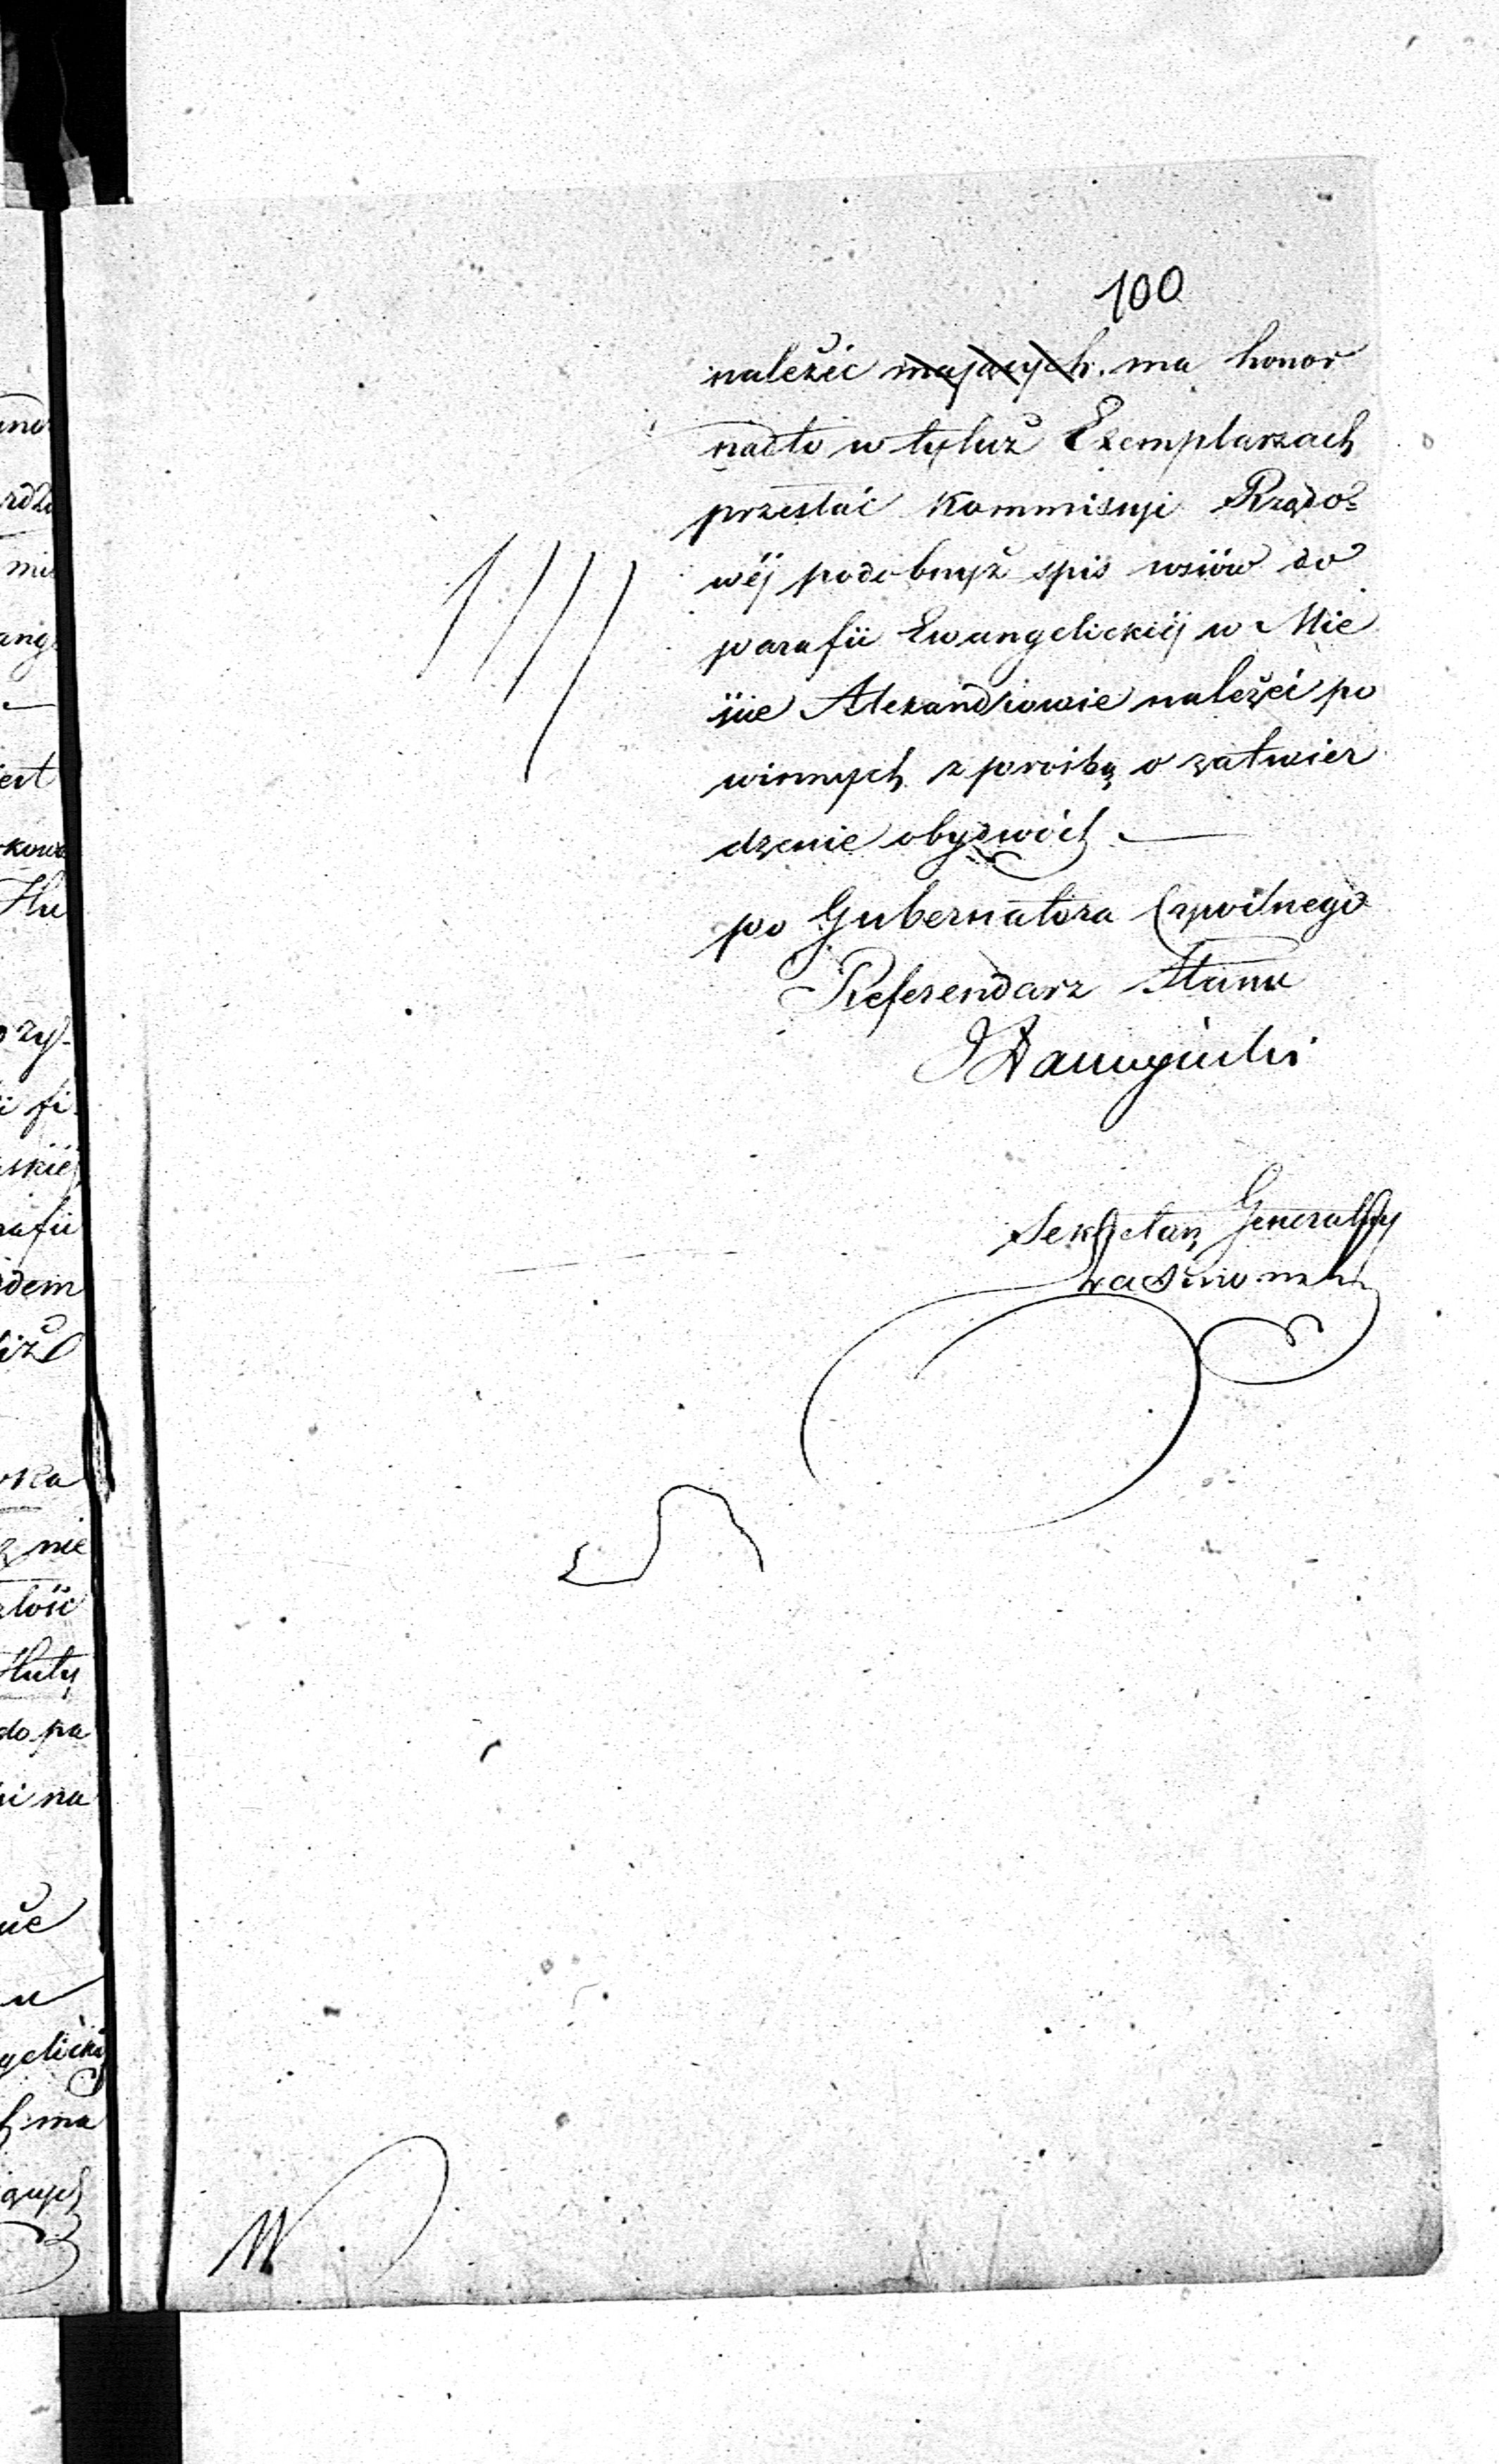 100
należéc mających ma honor
nadto w tyluż Exemplarzach
przesłać Kommissyi Rządo=
wéj podobnyż spis wsiów do
parafii Ewangelickiéj w Mie
ście Alexandrowie należéć po
winnych z prośbą o zatwier
dzenie obydwóch. —
po Gubernatora Cywilnego
Referendarz Stanu
Sekretarz Generalny